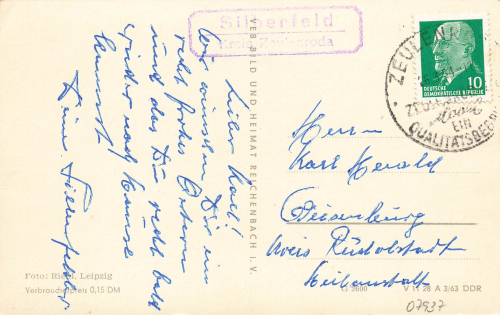 Silberfeld
Kreis Zeulenroda
Lieber Karl!
Wir wünschen Dir ein
recht frohes Ostern
und das Du recht bald
wieder nach Hause
kommst
Deine
VEB BILD UND HEIMAT REICHENBACH i. V.
ZEULENRODA
EIN
QUALITÄTSBEGRIFF
DEUTSCHE
DEMOKRATISCHE REPUBLIK
10
Herrn
Karl Herold
Kreis Rudolstadt
Heilanstalt
Foto: Riedl, Leipzig
Verbraucherpreis 0,15 DM
G 2600
V 11 28 A 3/63 DDR
07937